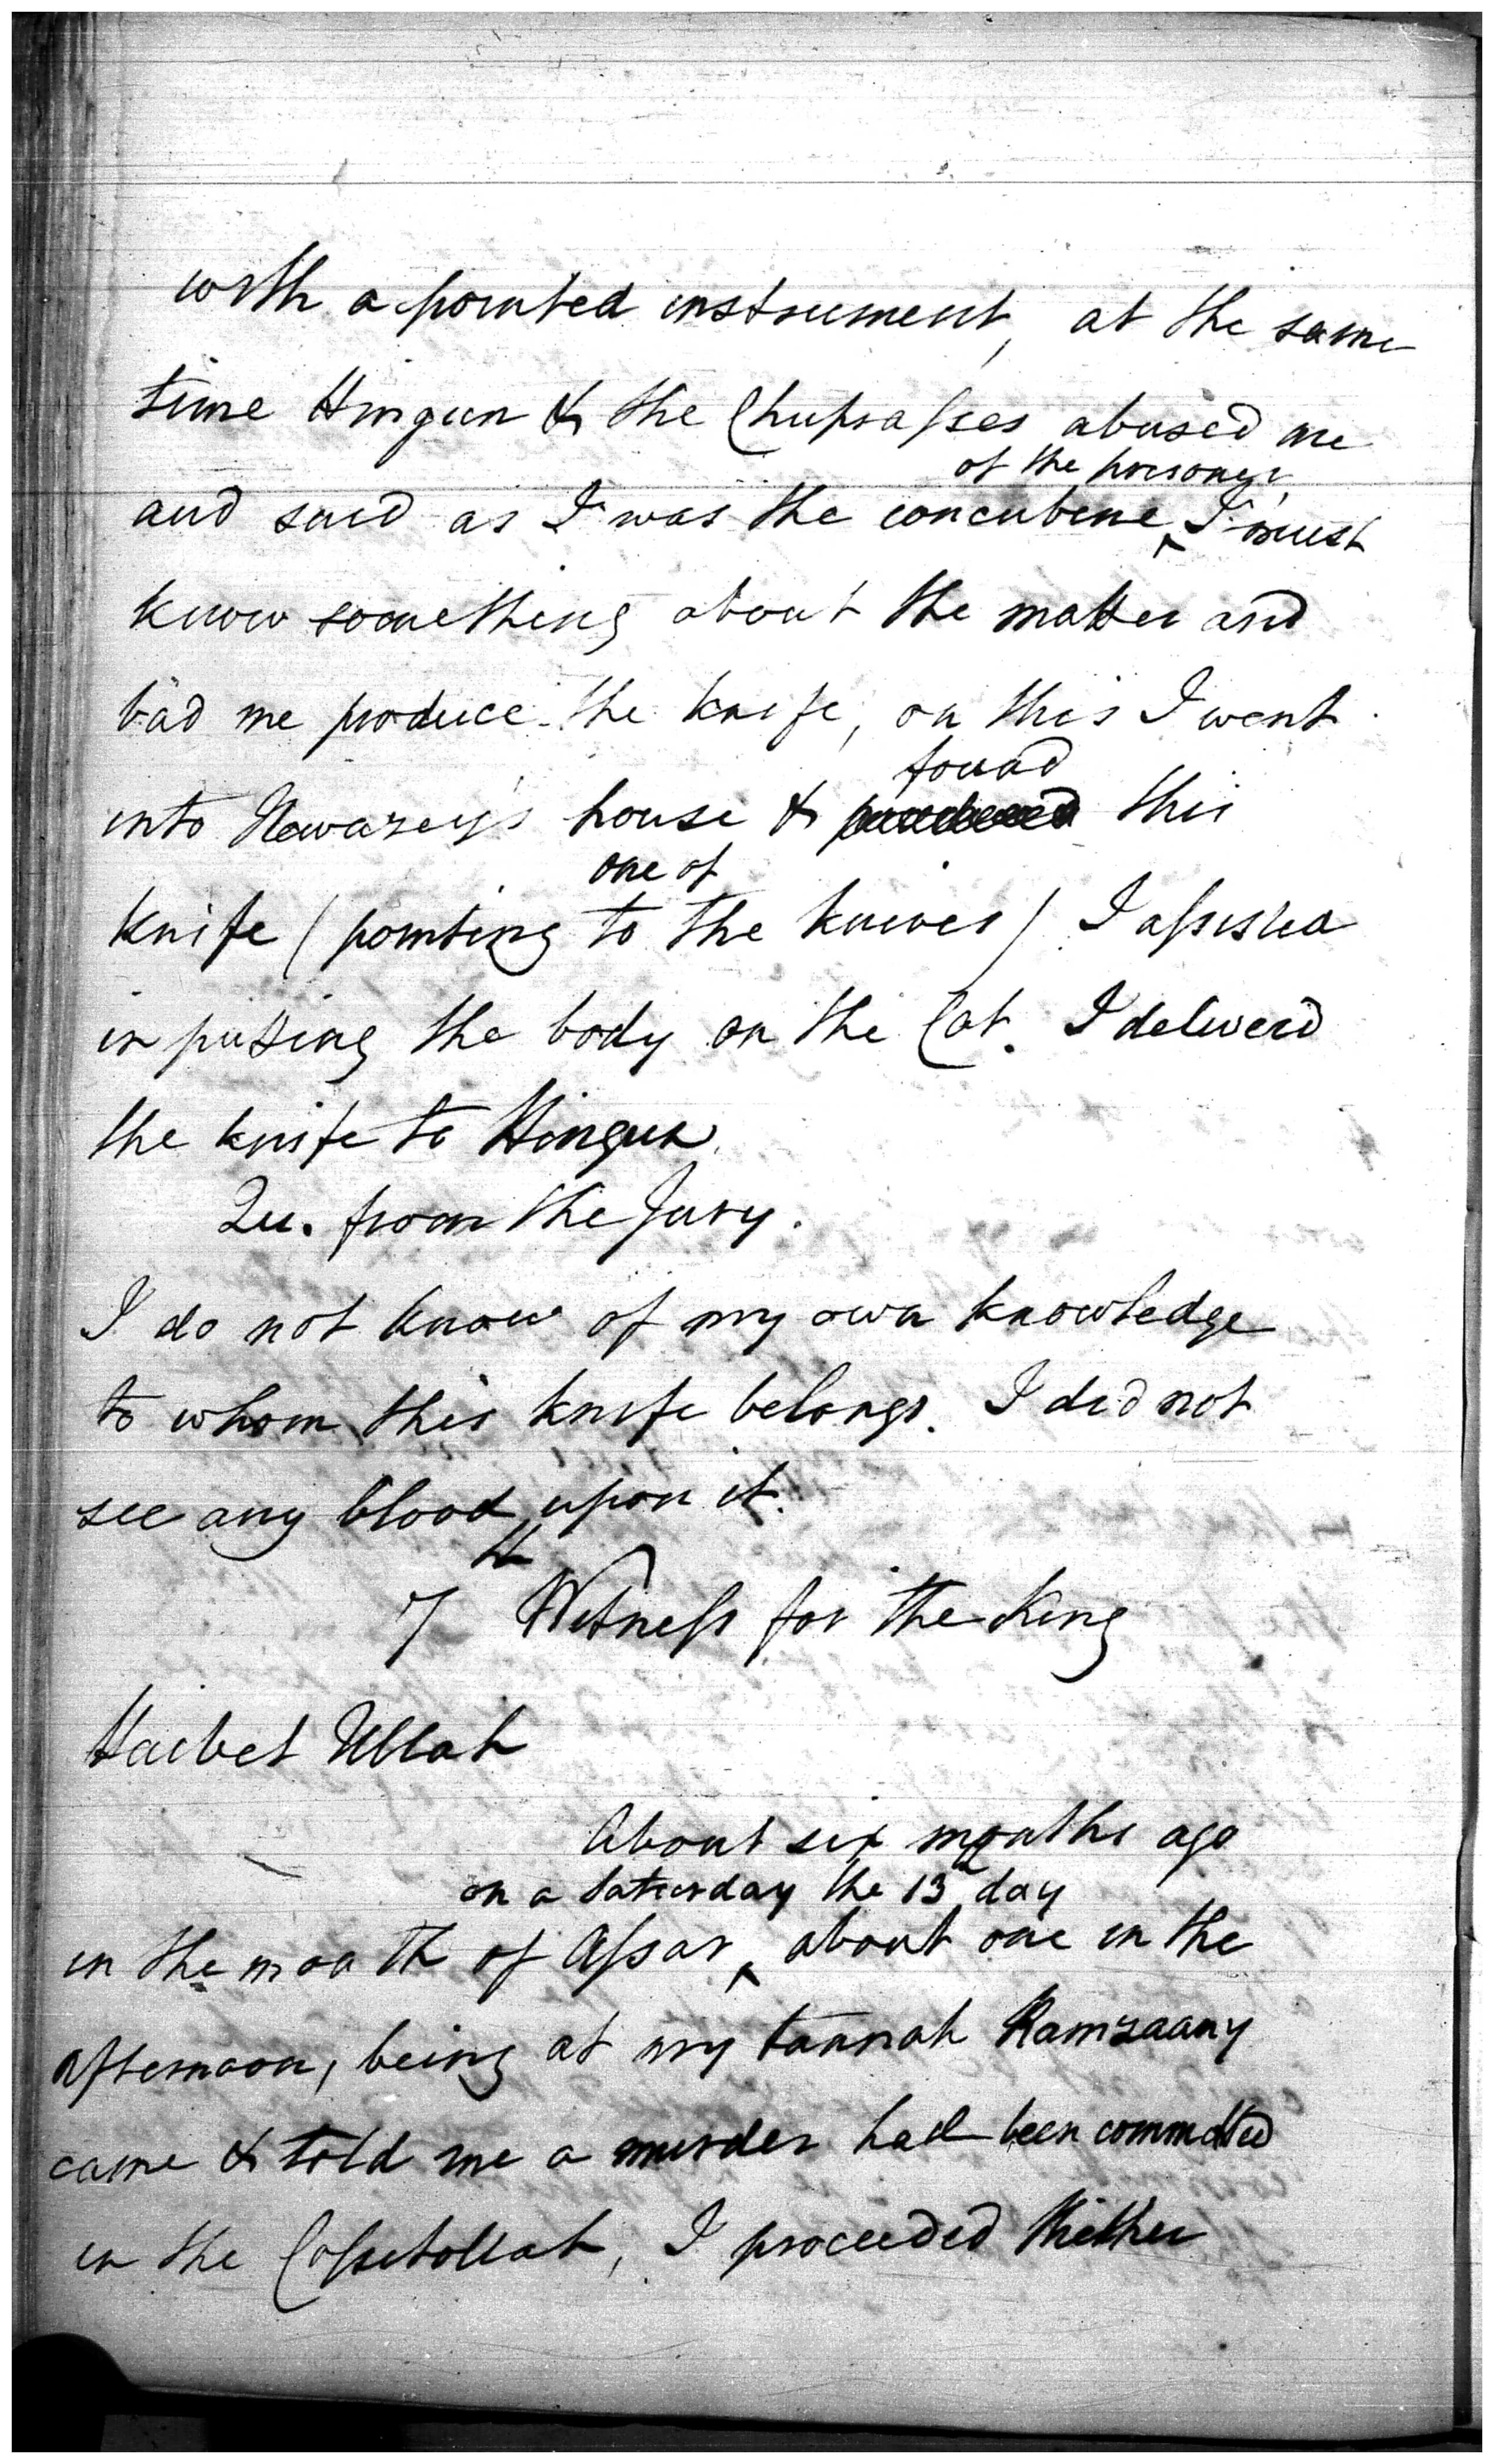 with a pointed instrument, at the same
time Hingun & the Chuprasses abused me
of the prisoner,
and said as I was the concubine I must
know something about the matter and
bad me produce the knife, on this I went
found
into Newazey's house & this
one of
knife (pointing to the knives) I assisted
in putting the body on the Cot. I deliverd
the knife to Hingun
Qu. from the Jury.
I do not know of my own knowledge
to whom this knife belongs. I did not
see any blood upon it.
7th Witness for the King
Haibet Ullah
About six months ago
on a Saturday the 13th day
in the month of Assar, about one in the
afternoon, being at my tannah Ramzaany
came & told me a murder had been committed
in the Cossitollah, I proceeded thither